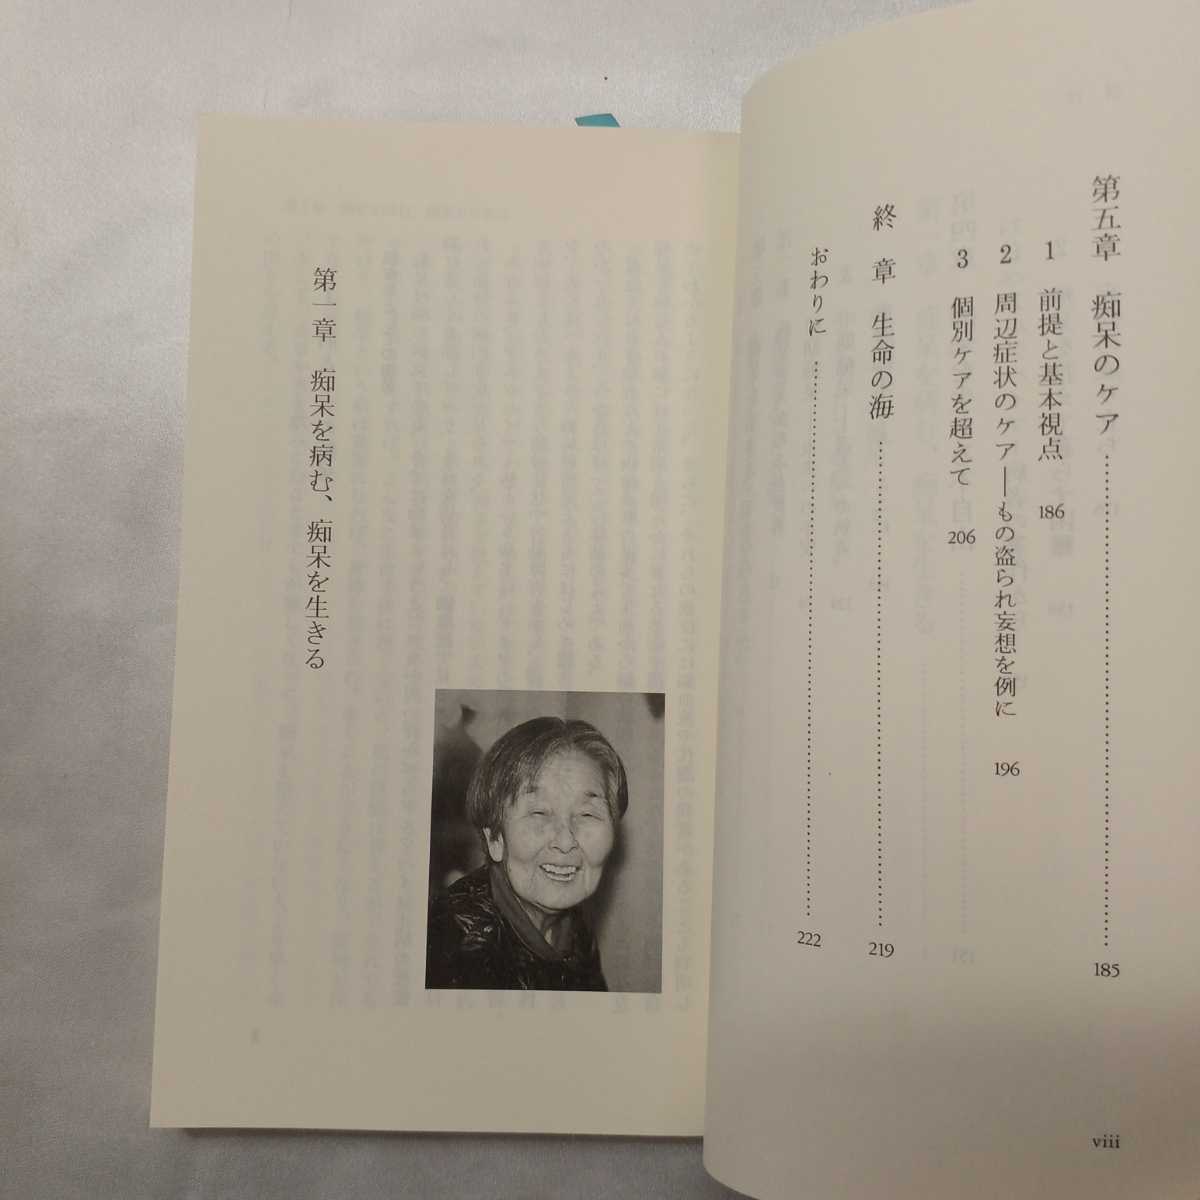 第五章　痴呆のケア…………185
1　前提と基本視点　186
2　周辺症状のケア――もの盗られ妄想を例に　196
3　個別ケアを超えて　206
終　章　生命の海…………219
おわりに…………222
viii
第一章　痴呆を病む、痴呆を生きる